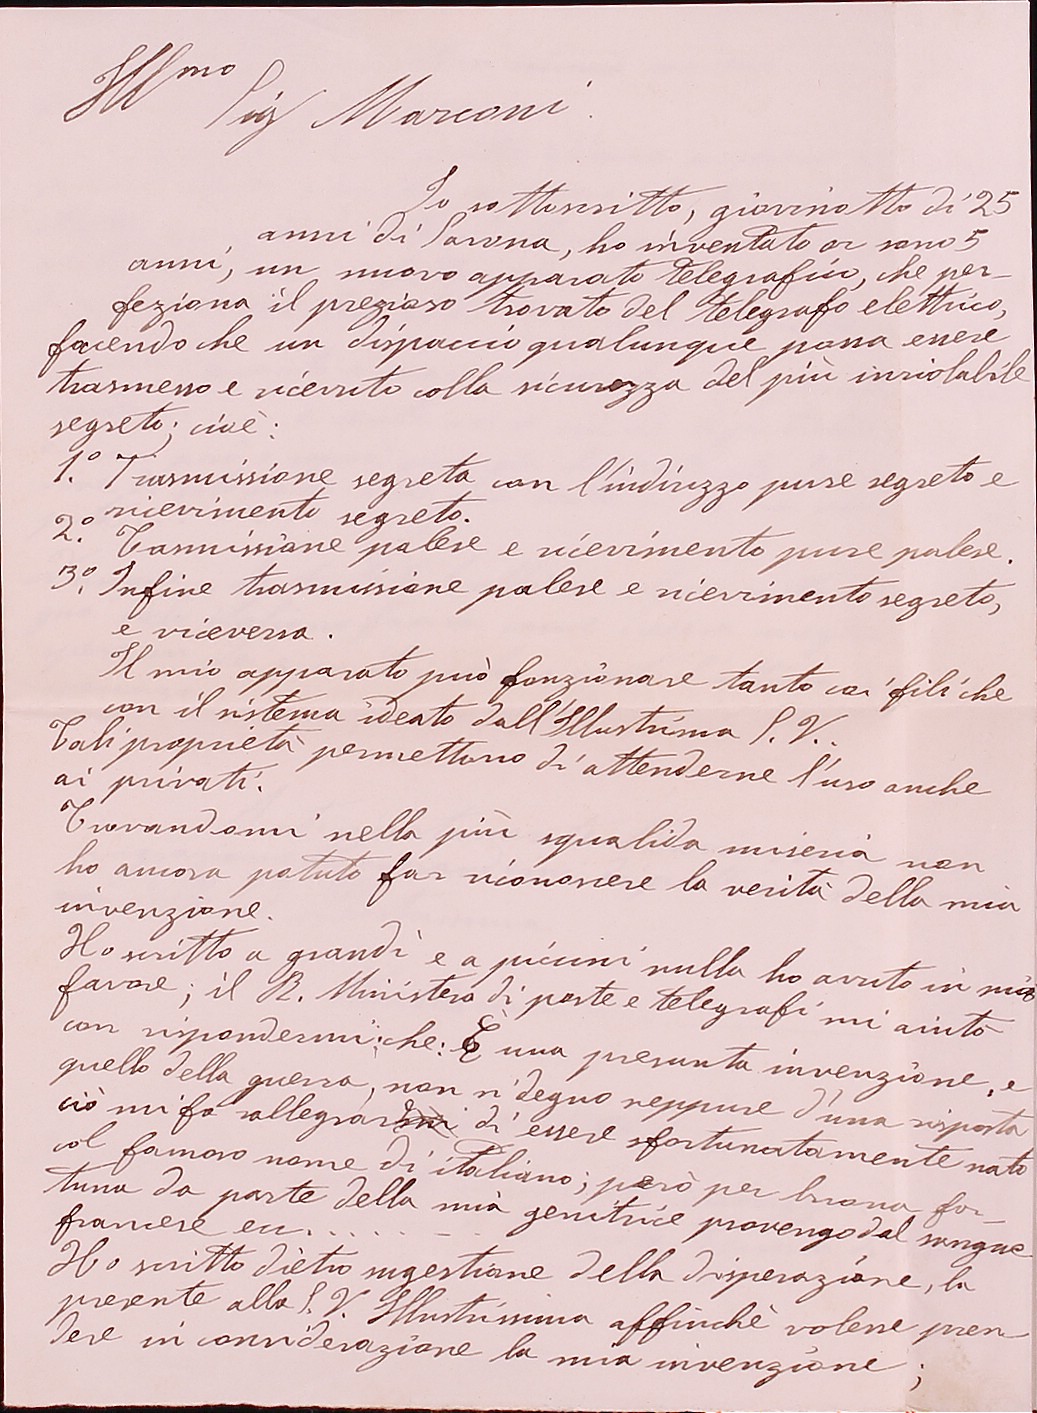 Ill.mo
Sig Marconi.
Io sottoscritto, giovinotto di 25
anni di Savona, ho inventato or sono 5
anni, un nuovo apparato telegrafico, che per-
feziona il prezioso trovato del telegrafo elettrico,
facendo che un dispaccio qualunque possa essere
trasmesso e ricevuto colla sicurezza del più inviolabile
segreto; cioè:
1.º Trasmissione segreta con l'indirizzo pure segreto e
ricevimento segreto.
2.º Tasmissione palese e ricevimento pure palese.
3.º Infine trasmissione palese e ricevimento segreto,
e viceversa.
Il mio apparato può fonzionare tanto coi fili che
con il sistema ideato dall'Illustrima S. V..
Tali proprietà permettono di attenderne l'uso anche
ai privati.
Trovandomi nella più squalida miseria non
ho ancora potuto far riconoscere la verità della mia
invenzione.
Ho scritto a grandi e a piccini nulla ho avuto in mio
favore; il R. Ministero di poste e telegrafi mi aiutò
con rispondermi: che: È una presunta invenzione, e
quello della guerra, non si degnò neppure d'una risposta
ciò mi fa rallegrar di essere sfortunatamente nato
col famoso nome di italiano; però per buona for-
tuna da parte della mia genitrice provengo dal sangue
francese ecc.......
Ho scritto dietro sugestione della disperazione, la
presente alla S. V. Illustrissima affinchè volesse pren-
dere in considerazione la mia invenzione;